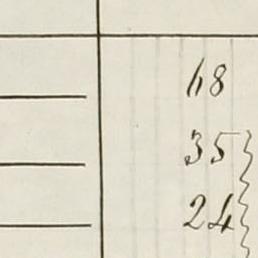 68
35
24